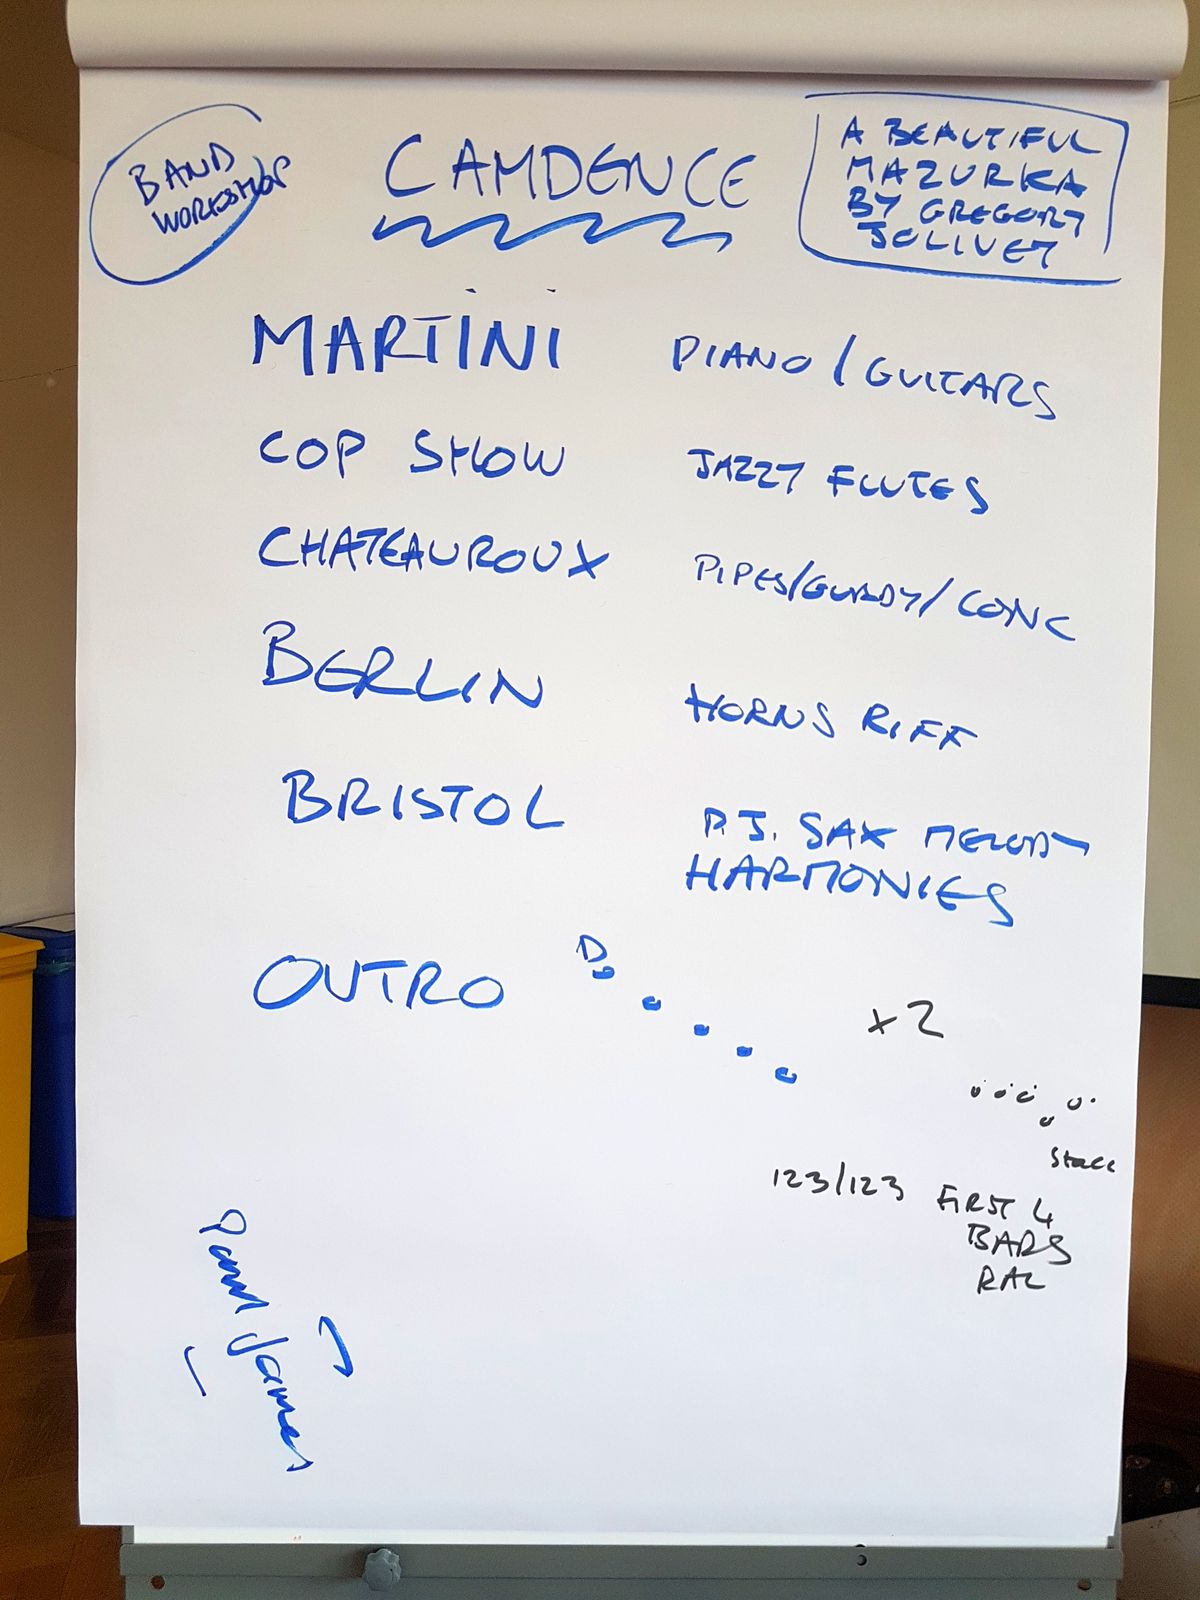 BAND
WORKSHOP
CAMDENCE
A BEAUTIFUL
MAZURKA
BY GREGORY
JOLIVET
MARTINI PIANO/GUITARS
COP SHOW JAZZY FLUTES
CHATEAUROUX PIPES/GURDY/CONC
BERLIN HORNS RIFF
BRISTOL P.J. SAX MELODY
HARMONIES
OUTRO D
x2
Stacc
123/123 FIRST 4
BARS
Paul James